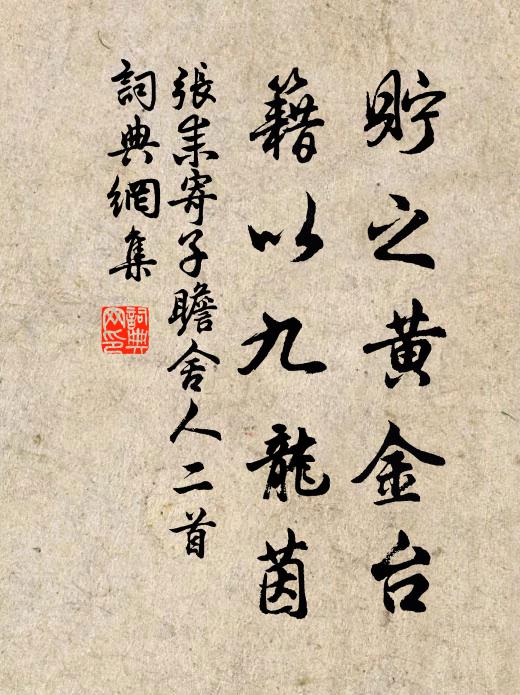 貯之黄金台
籍以九龍茵
張耒寄子瞻舍人二首
詞典網集
詞典網印